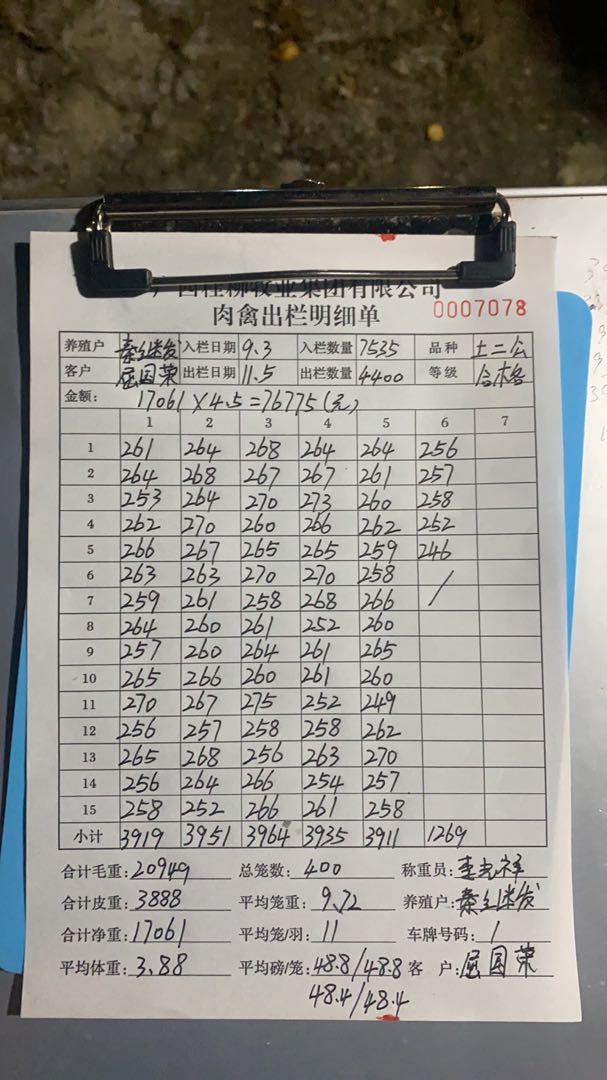 广西桂柳牧业集团有限公司
肉禽出栏明细单 0007078
养殖户 秦继发 入栏日期 9.3 入栏数量 7535 品种 土二公
客户 屈国荣 出栏日期 11.5 出栏数量 4400 等级 合格
金额: 17061×4.5=76775(元)
1 2 3 4 5 6 7
1 261 264 268 264 264 256
2 264 268 267 267 261 257
3 253 264 270 273 260 258
4 262 270 260 266 262 252
5 266 267 265 265 259 246
6 263 263 270 270 258 /
7 259 261 258 268 266
8 264 260 261 252 260
9 257 260 264 261 265
10 265 266 260 261 260
11 270 267 275 252 249
12 256 257 258 258 262
13 265 268 256 263 270
14 256 264 266 254 257
15 258 252 266 261 258
小计 3919 3951 3964 3935 3911 1269
合计毛重: 20949 总笼数: 400 称重员:
合计皮重: 3888 平均笼重: 9.72 养殖户: 秦继发
合计净重: 17061 平均笼/羽: 11 车牌号码: /
平均体重: 3.88 平均磅/笼: 48.8/48.8 客 户: 屈国荣
48.4/48.4